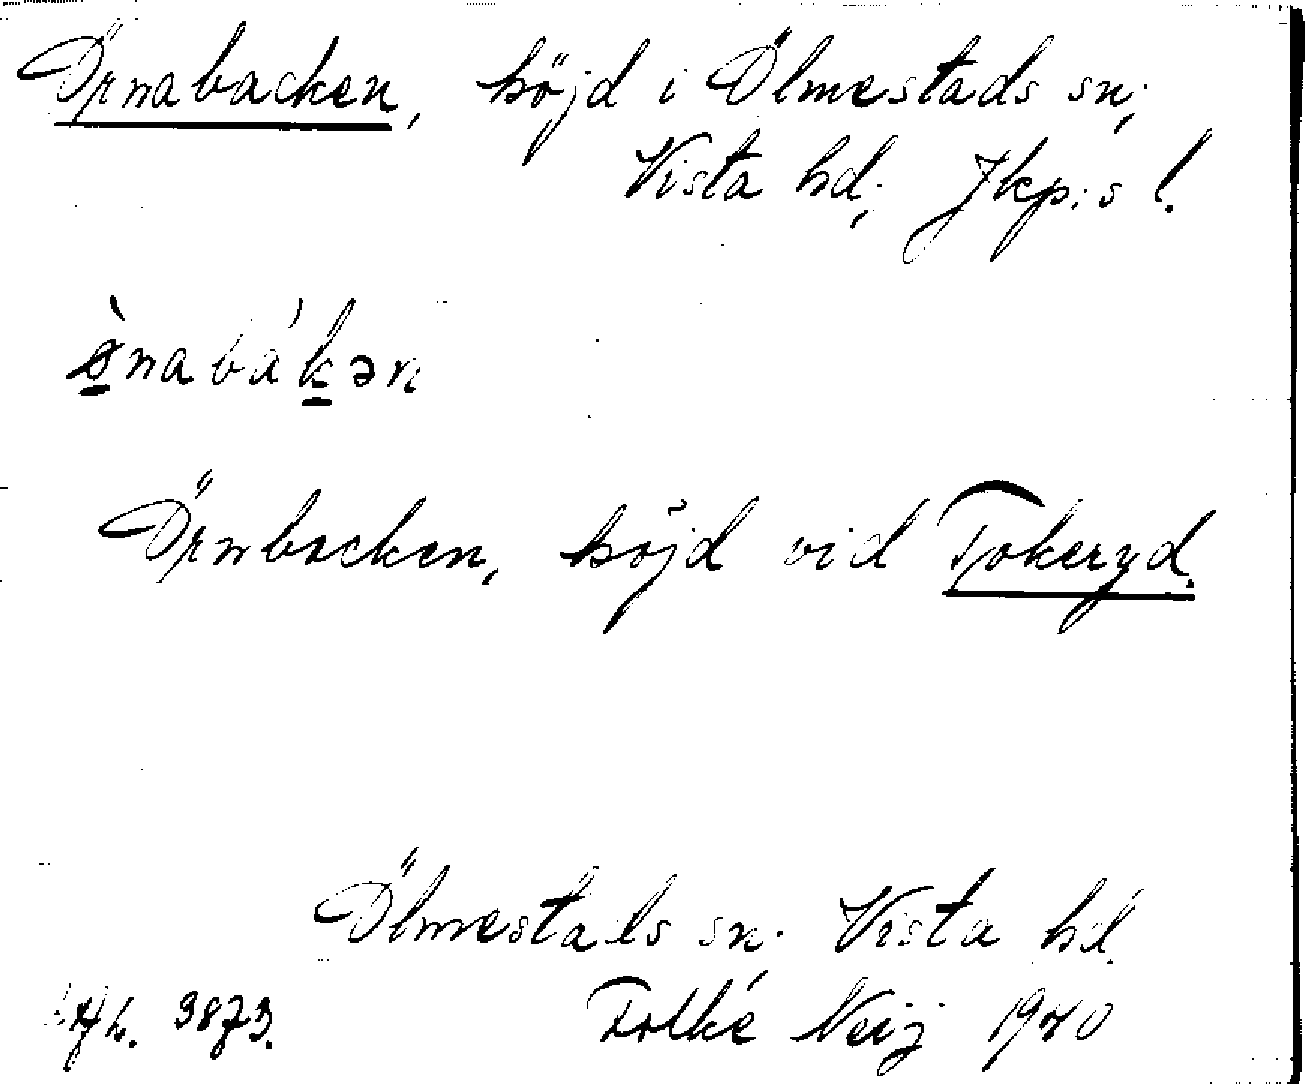 Örnabacken, höjd i Ölmestads sn;
Vista hd; Jkp:s l.
ǿ̀nabákən
Örnbacken, höjd vid Tokeryd.
Ölmestads sn. Vista hd.
3873. Folke Neij 1940